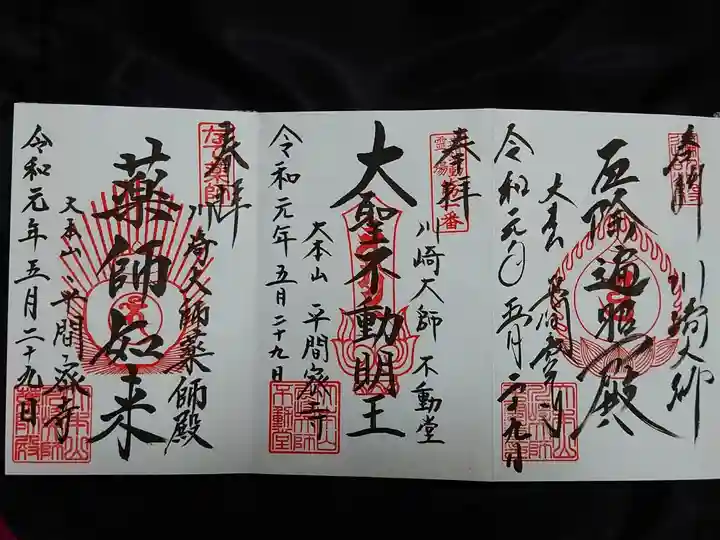 奉拝
川崎大師
厄除遍照殿
大本山
平間寺
令和元年五月二十九日
奉拝
川崎大師 不動堂
大聖不動明王
大本山 平間寺
令和元年五月二十九日
不動堂
奉拝
なで薬師
川崎大師薬師殿
薬師如来
大本山 平間寺
令和元年五月二十九日
薬師殿